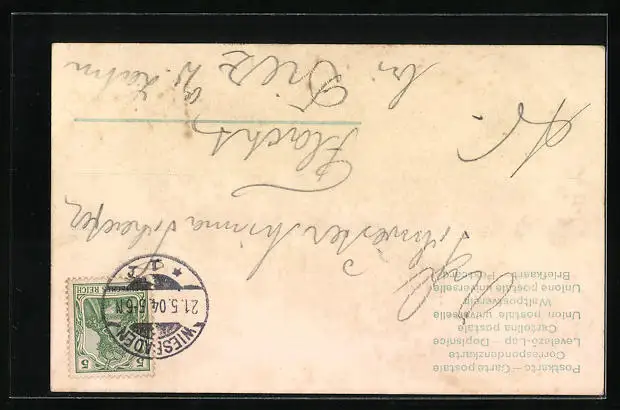 Postkarte — Carte postale
Correspondenzkarte
Levelező-Lap — Dopisnice
Cartolina postale
Union postale universelle
Weltpostverein
Unione postale universelle
Briefkaart Postcard
5
DEUTSCHES REICH
WIESBADEN
21.5.04. 5-6N
Schwester Minna
Flacht
b/ Diez a/ Lahn